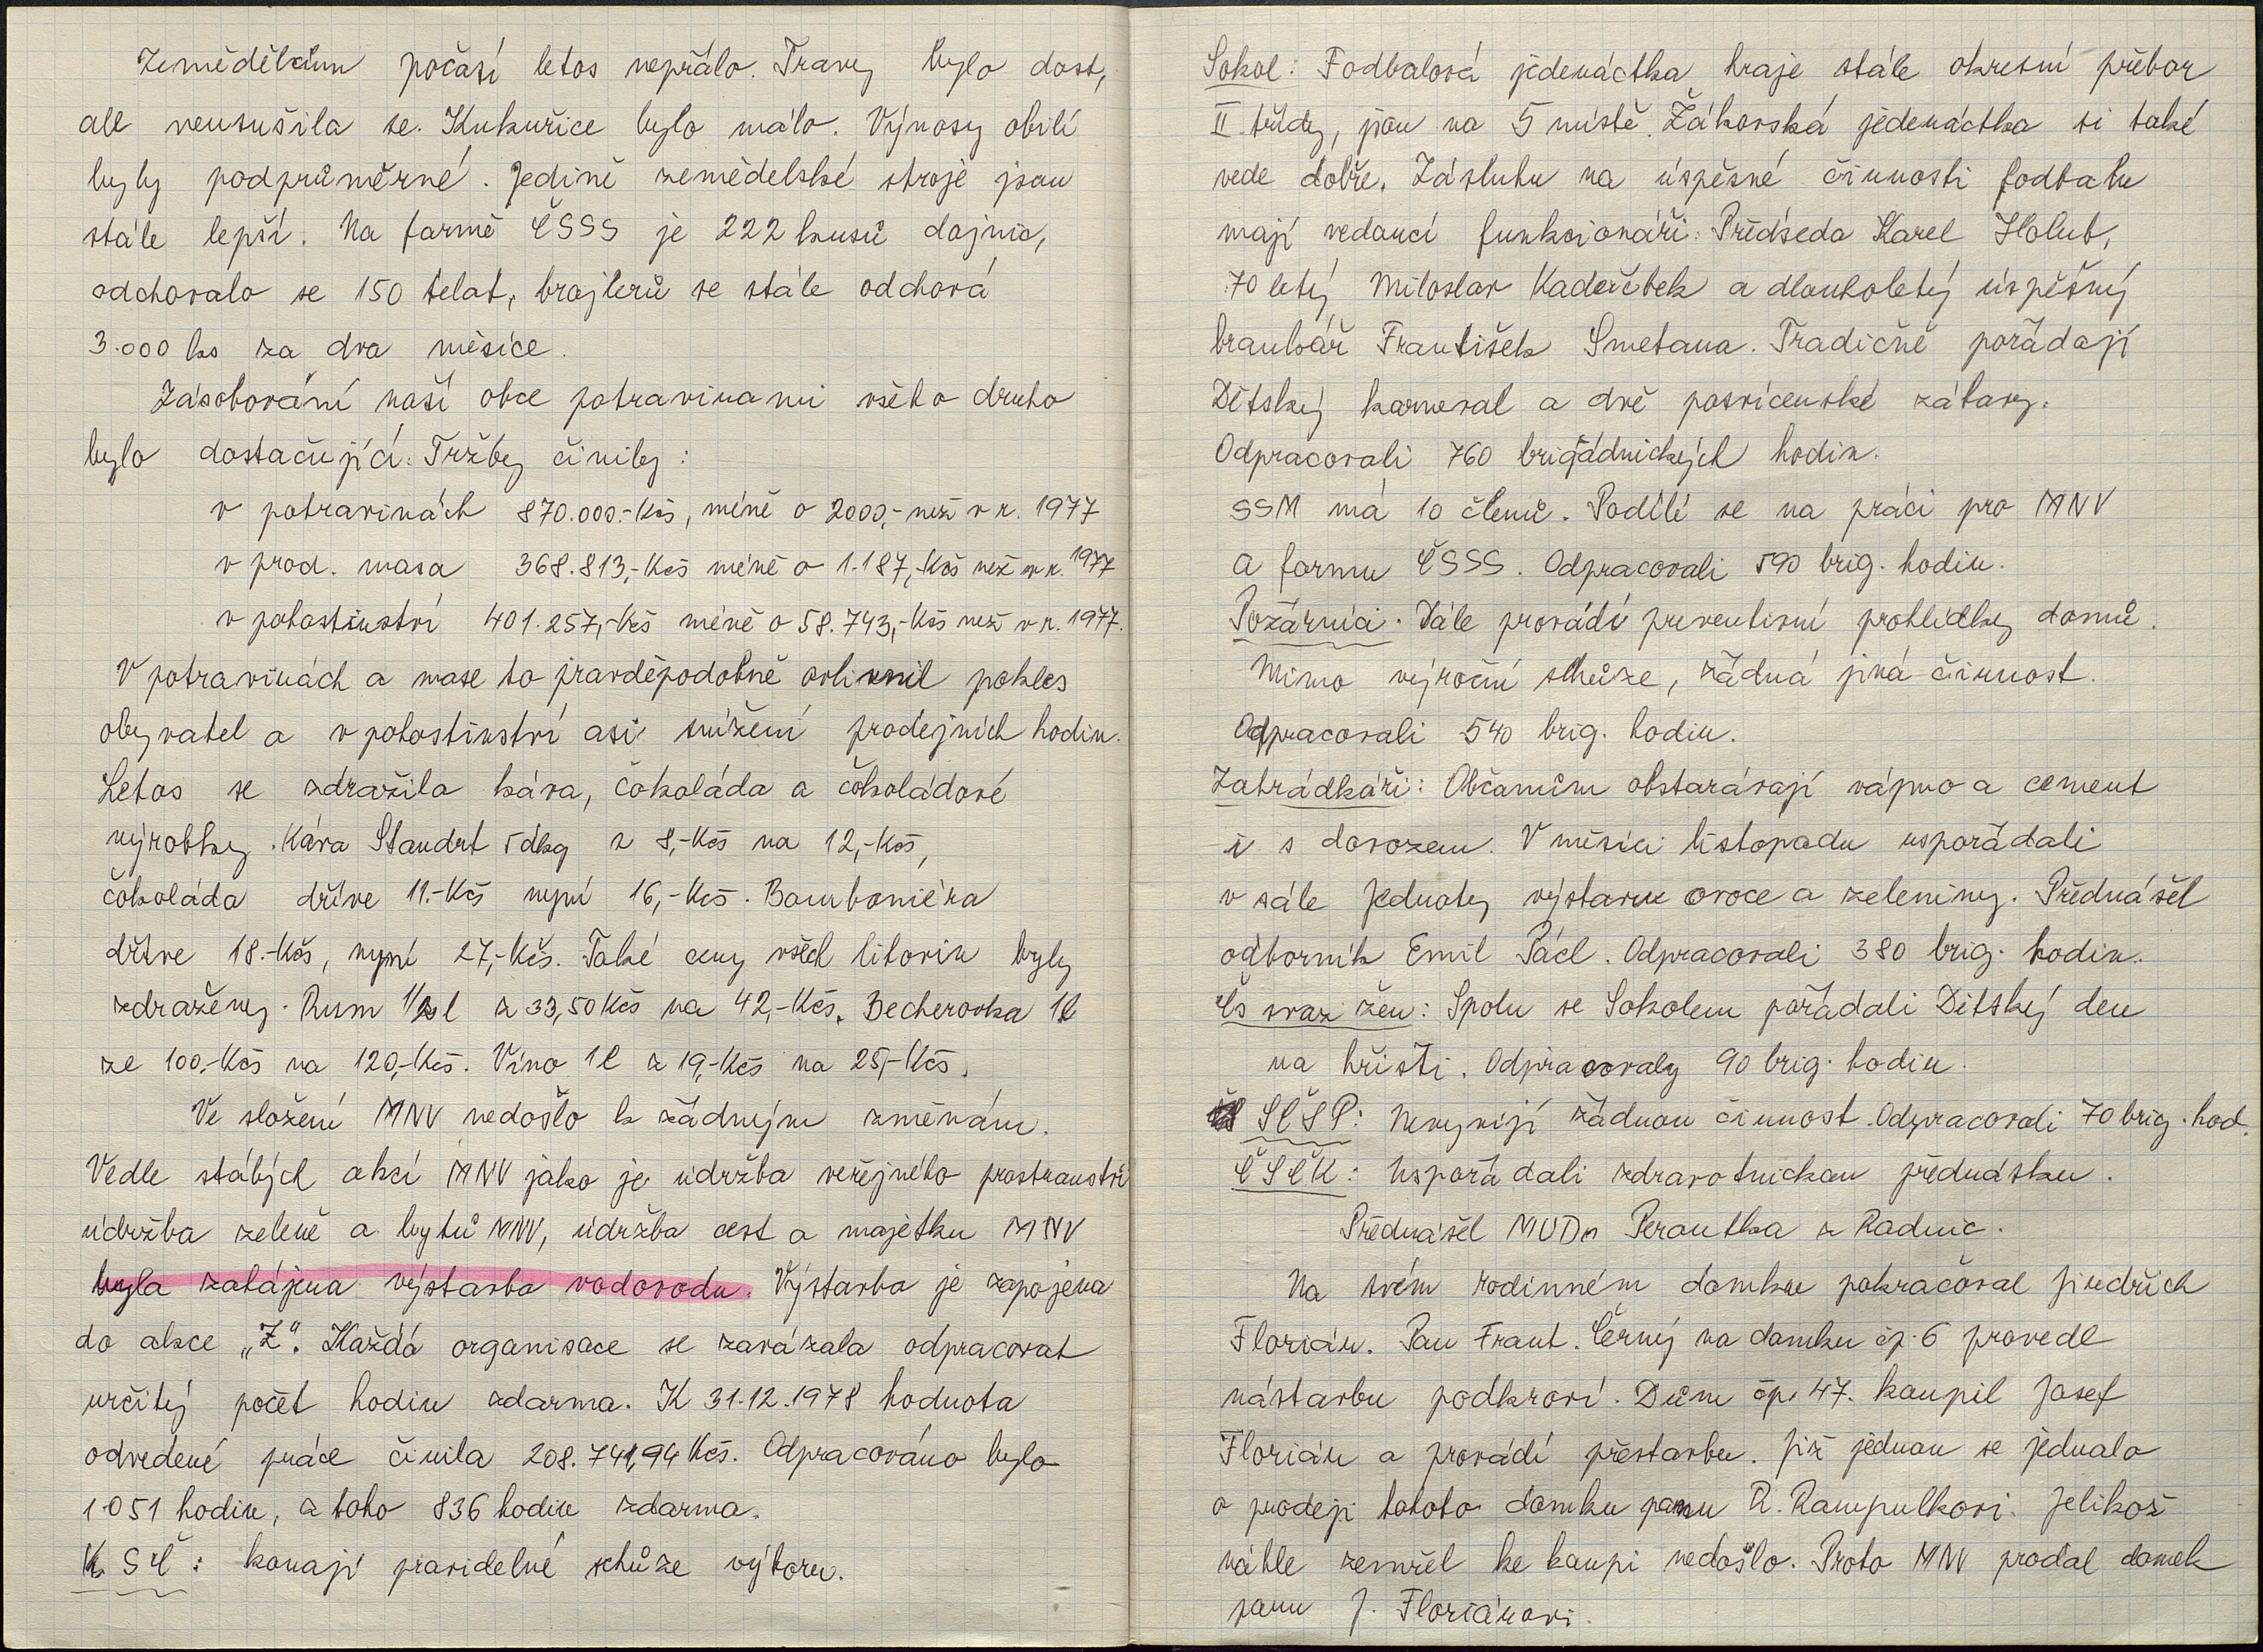 Zemědělcům počasí letos nepřálo. Travy bylo dost,
ale neusušila se. Kukuřice bylo málo. Výnosy obilí
byly podprůměrné. Jedině zemědělské stroje jsou
stále lepší. Na farmě ČSSS je 222 kusů dojnic,
odchovalo se 150 telat, brojlerů se stále odchová
3.000 ks za dva měsíce.
Zásobování naší obce potravinami všeho druho
bylo dostačující. Tržby činily:
v potravinách 870.000.-Kčs, méně o 2000,- než v r. 1977
v prod. masa 368.813,-Kčs méně o 1.187,-Kčs než v r. 1977
v pohostinství 401.257,-Kčs méně o 58.743,-Kčs než v r. 1977.
V potravinách a mase to pravděpodobně ovlivnil pokles
obyvatel a v pohostinství asi snížení prodejních hodin.
Letos se zdražila káva, čokoláda a čokoládové
výrobky. Káva Standrt 5dkg z 8,-Kčs na 12,-Kčs,
čokoláda dříve 11.-Kčs nyní 16,-Kčs. Bomboniéra
dříve 18.-Kčs, nyní 27,-Kčs. Také ceny všech lihovin byly
zdraženy. Rum 1/2 l z 33,50 Kčs na 42,-Kčs. Becherovka 1l
ze 100.-Kčs na 120,-Kčs. Víno 1l z 19,-Kčs na 25,-Kčs.
Ve složení MNV nedošlo k žádným změnám.
Vedle stálých akcí MNV jako je údržba veřejného prostranství
údržba zeleně a bytů MNV, údržba cest a majetku MNV
byla zahájena výstavba vodovodu. Výstavba je zapojena
do akce „Z“. Každá organisace se zavázala odpracovat
určitý počet hodin zdarma. K 31.12.1978 hodnota
odvedené práce činila 208.741,94 Kčs. Odpracováno bylo
1051 hodin, z toho 836 hodin zdarma.
KSČ: konají pravidelné schůze výboru.
Sokol: Fodbalová jedenáctka hraje stále okresní přebor
II třídy, jsou na 5 místě. Žákovská jedenáctka si také
vede dobře. Zásluhu na úspěšné činnosti fodbalu
mají vedoucí funkcionáři: Předseda Karel Holub,
70 letý Miloslav Kadeřábek a dlouholetý úspěšný
brankář František Smetana. Tradičně pořádají
Dětský karneval a dvě posvícenské zábavy.
Odpracovali 760 brigádnických hodin.
SSM má 10 členů. Podílí se na práci pro MNV
a farmu ČSSS. Odpracovali 590 brig. hodin.
Požárníci. Dále provádí preventivní prohlídky domů.
Mimo výroční schůze, žádná jiná činnost.
Odpracovali 540 brig. hodin.
Zahrádkáři: Občanům obstarávají vápno a cement
i s dovozem. V měsíci listopadu uspořádali
v sále Jednoty výstavu ovoce a zeleniny. Přednášel
odborník Emil Pácl. Odpracovali 380 brig. hodin.
Čs svaz žen: Spolu se Sokolem pořádali Dětský den
na hřišti. Odpracovaly 90 brig. hodin.
SČSP: Nevyvíjí žádnou činnost. Odpracovali 70 brig. hod.
ČSČK: Uspořádali zdravotnickou přednášku.
Přednášel MUDr Peroutka z Radnic.
Na svém rodinném domku pokračoval Jindřich
Florián. Pan Frant. Černý na domku čp. 6 provedl
nástavbu podkroví. Dům čp. 47. koupil Josef
Florián a provádí přestavbu. Již jednou se jednalo
o prodeji tohoto domku panu R. Rampulkovi. Jelikož
náhle zemřel ke koupi nedošlo. Proto MNV prodal domek
panu J. Floriánovi.